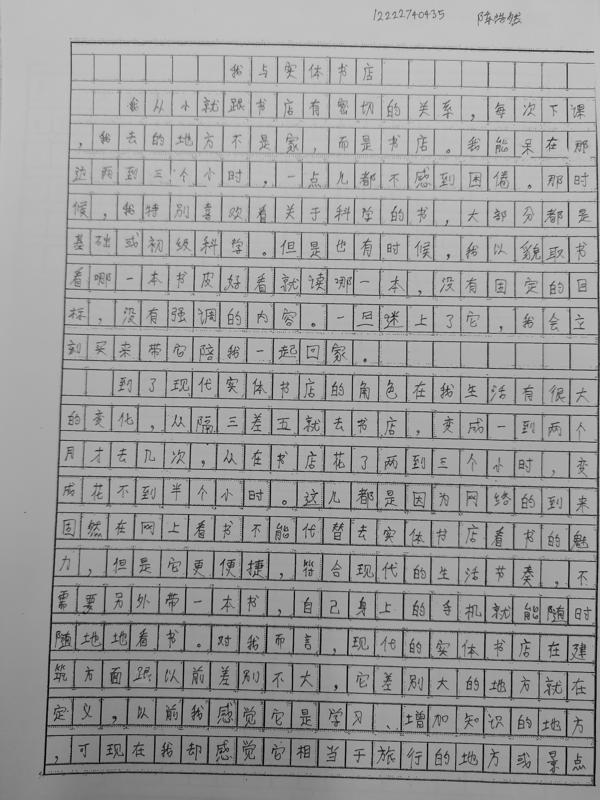 12222740435 陈皓然
我与实体书店
我从小就跟书店有密切的关系，每次下课
，我去的地方不是家，而是书店。我能呆在那
边两到三个小时，一点儿都不感到困倦。那时
候，我特别喜欢看关于科学的书，大部分都是
基础或初级科学。但是也有时候，我以貌取书
看哪一本书皮好看就读哪一本，没有固定的目
标，没有强调的内容。一旦迷上了它，我会立
刻买来带它陪我一起回家。
到了现代实体书店的角色在我生活有很大
的变化，从隔三差五就去书店，变成一到两个
月才去几次，从在书店花了两到三个小时，变
成花不到半个小时。这儿都是因为网络的到来
固然在网上看书不能代替去实体书店看书的魅
力，但是它更便捷，符合现代的生活节奏，不
需要另外带一本书，自己身上的手机就能随时
随地地看书。对我而言，现代的实体书店在建
筑方面跟以前差别不大，它差别大的地方就在
定义，以前我感觉它是学习、增加知识的地方
，可现在我却感觉它相当于旅行的地方或景点